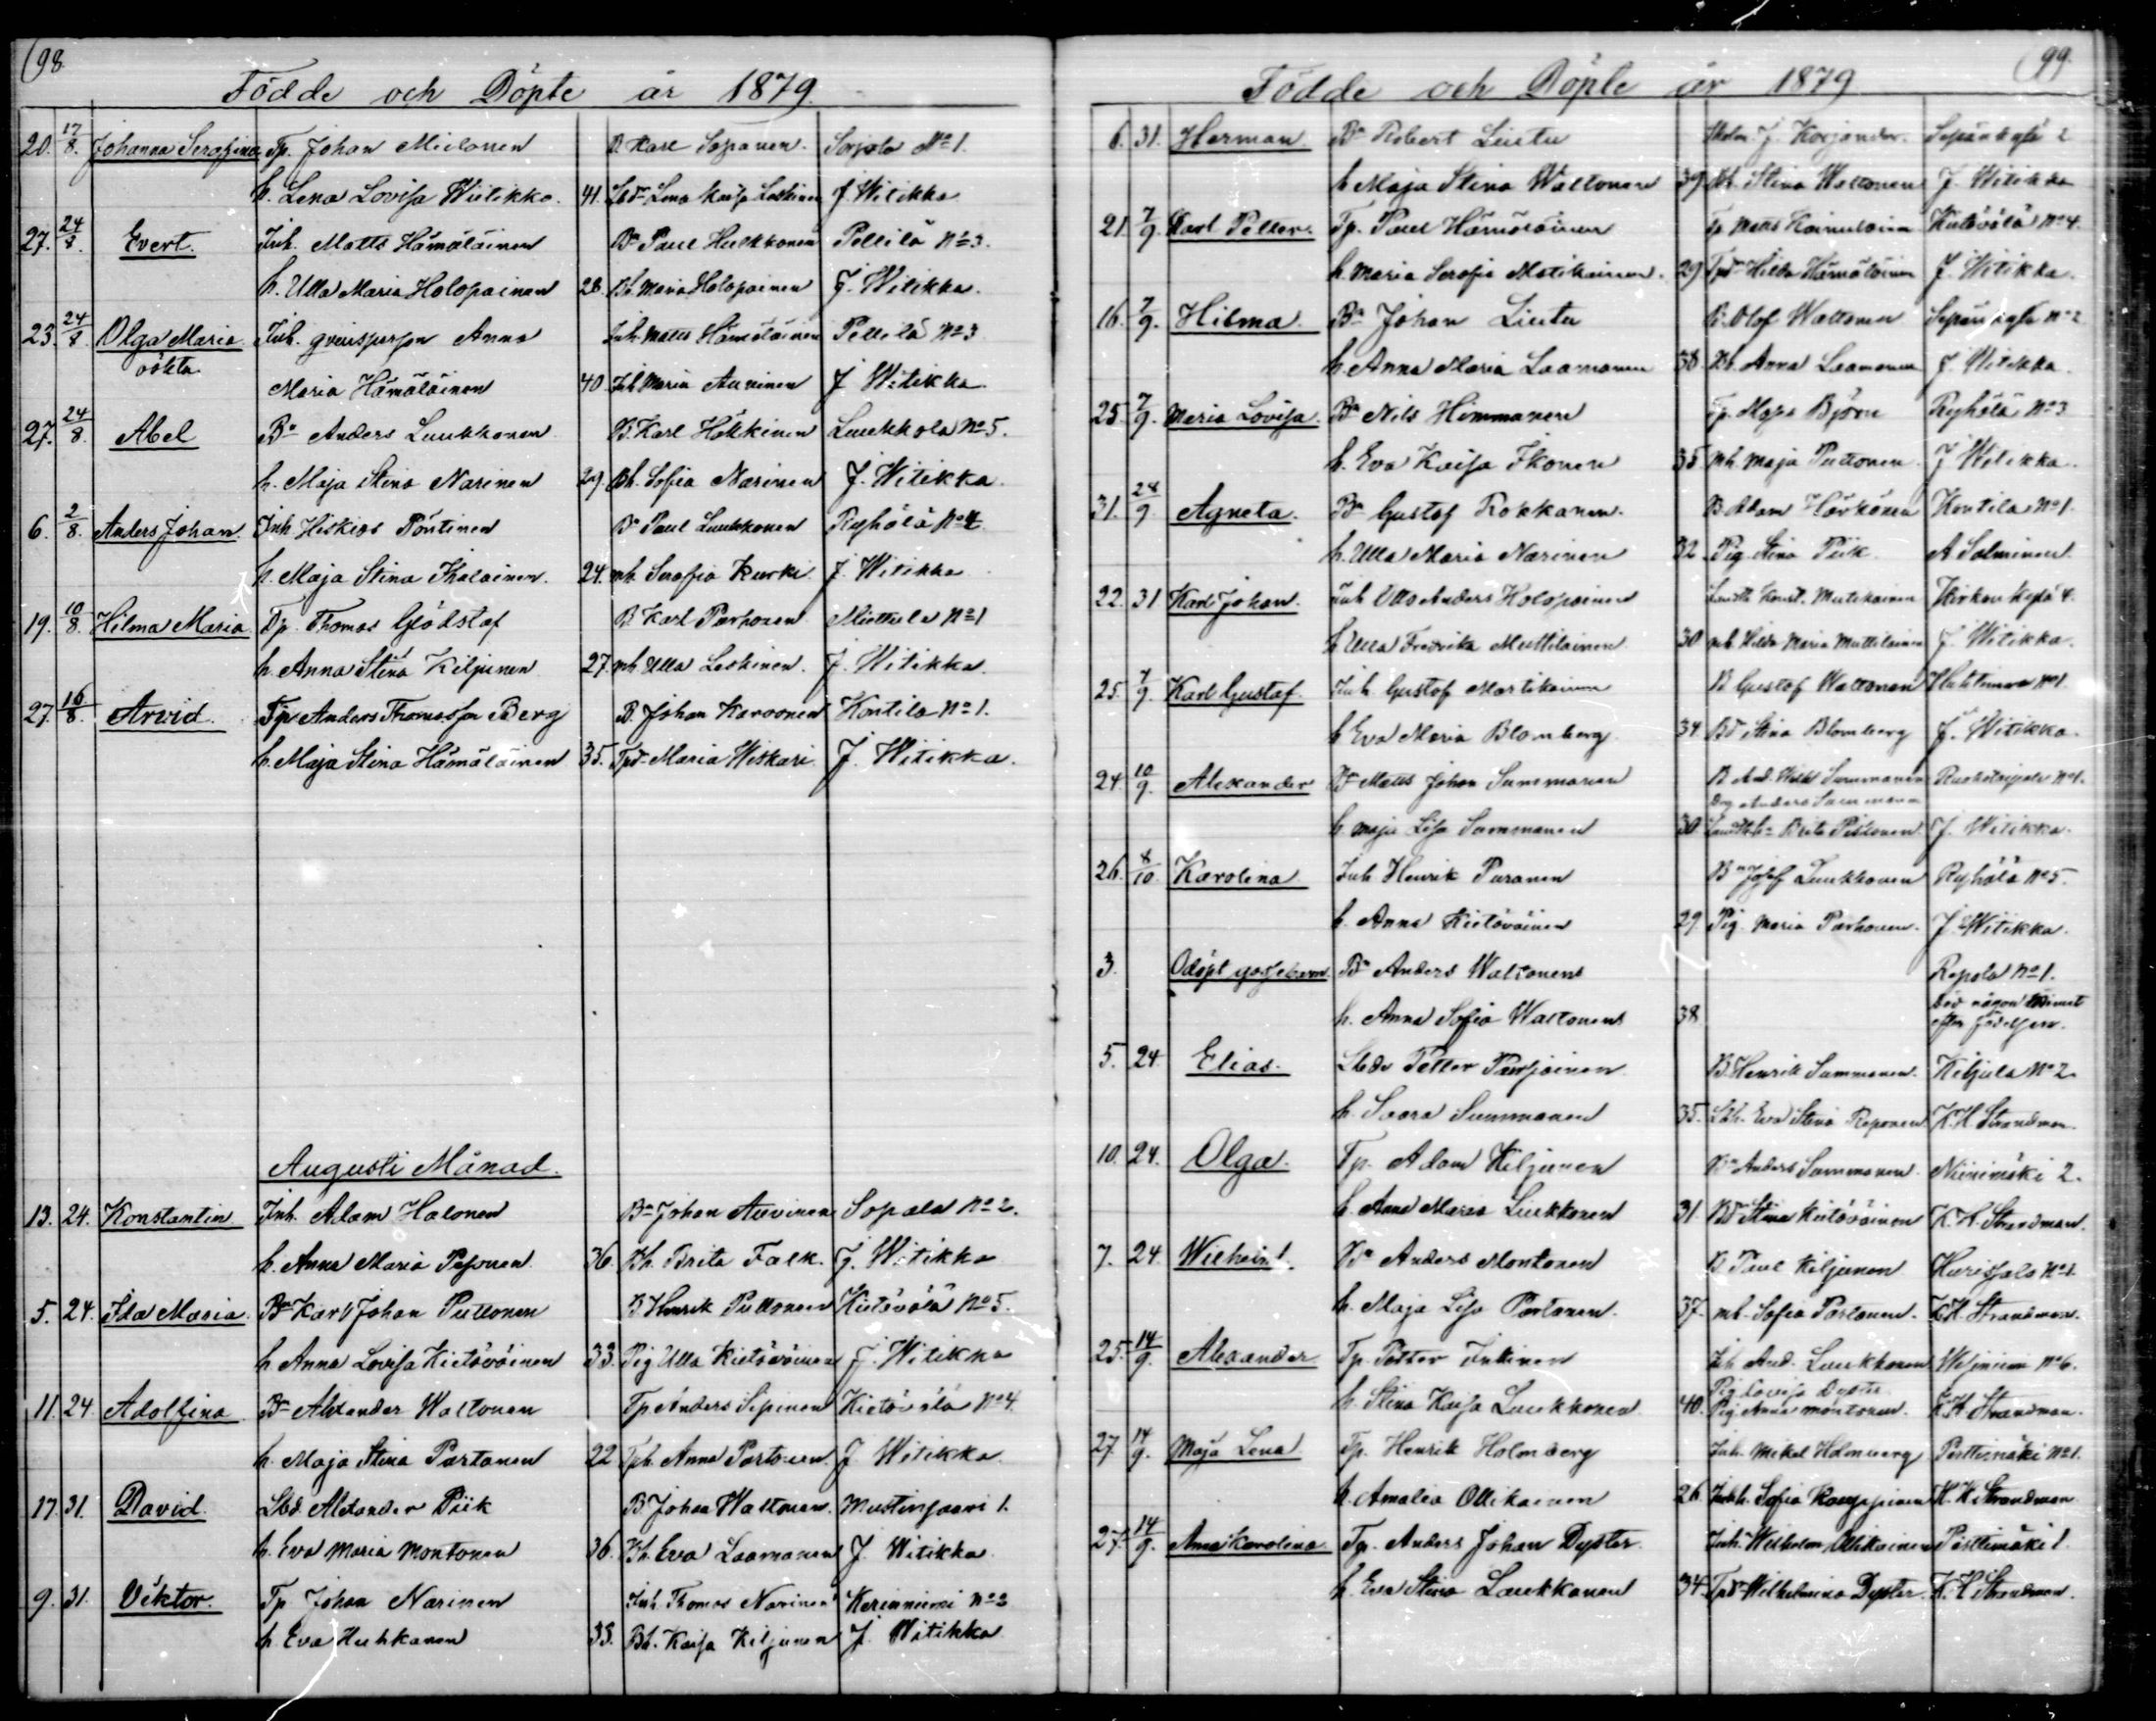 98
Födde och Döpte år 1879.
20. 17/8. Johanna Serafina Tp. Johan Mielonen B. Karl Sopanen. Sorjola No 1.
h. Lena Lovisa Witikka. 41. Lbdr Lena Kaisa Leskinen J. Witikka
27. 24/8. Evert. Inh. Matts Hämäläinen Bn Paul Hulkkonen Pellilä No 3.
h. Ulla Maria Holopainen 28. Bh. Maria Holopainen J. Witikka.
23. 24/8 Olga Maria Inh. qvinsperson Anna Inh. Matts Hämäläinen Pellilä No 3
oäkta Maria Hämäläinen 40. Inh Maria Auvinen J Witikka
27. 24/8. Abel Bn Anders Luukkonen B. Karl Häkkinen Luukkola No 5.
h. Maja Stina Narinen 29. Bh. Sofia Narinen J. Witikka.
6. 2/8. Anders Johan. Inh Hiskias Pöntinen Bn Paul Luukkonen Ryhälä No 4
h. Maja Stina Ihalainen. 24. mh. Serafia Kurki J. Witikka
19. 10/8. Hilma Maria Tp. Thomas Glödstaf B. Karl Parhonen Miettula No 1
h. Anna Stina Kiljunen 27. mh. Ulla Leskinen. J. Witikka.
27. 16/8. Arvid. Tp. Anders Thomasson Berg B. Johan Karvonen Kontila No 1.
h. Maja Stina Hämäläinen 35. Tpdr Maria Wiskari J. Witikka.
Augusti Månad.
13. 24. Konstantin Inh. Adam Halonen Bn Johan Auvinen Sopala No 2.
h. Anna Maria Pesonen 36. Bh. Brita Falk. J. Witikka
5. 24. Ida Maria. Bn Karl Johan Puttonen B Henrik Puttonen Kietävälä No 5.
h Anna Lovisa Kietäväinen 33. Pig Ulla Kietäväinen J. Witikka
11. 24 Adolfina Bn Alexander Waltonen Tp Anders Sipinen Kietävälä No 4.
h. Maja Stina Partanen 22 Tph. Anna Partanen J Witikka
17. 31. David. Lbd. Alexander Piik B. Johan Waltonen. Mustinsaari 1.
h. Eva Maria Montonen 36. Bh. Eva Laamanen J. Witikka.
9. 31. Viktor. Tp. Johan Narinen Inh. Thomas Narinen Kerinniemi No 2
h. Eva Huhkanen 33. Bh. Kaisa Kiljunen J. Witikka
99.
Födde och Döpte år 1879
6. 31. Herman Bn Robert Liutu J. Korjander. Sepänkylä 2
h Maja Stina Waltonen 39 Bh. Stina Waltonen J. Witikka
21. 7/9. Karl Petter. Tp. Paul Hämäläinen Tp Matts Hämäläinen Kietävälä No 4.
h. Maria Serafia Matikainen. 29 Tpdr Hilda Hämäläinen J. Witikka.
16. 7/9. Hilma. Bn Johan Liutu B. Olof Waltonen Sepänkylä No 2
h. Anna Maria Laamanen 38 Bh. Anna Laamanen J. Witikka.
25. 7/9. Maria Lovisa. Bn Nils Himmanen Tp. Björn Ryhälä No 3
h. Eva Kaisa Ikonen 35 mh. Maja Puttonen J Witikka.
31. 28/9 Agneta. Bn Gustaf Rokkanen. B Adam Härkönen Kontila No 1.
h. Ulla Maria Narinen 32 Pig Stina Piik A Salminen.
22. 31 Karl Johan. Inh Otto Anders Holopainen Mutikainen Kirkonkylä 4.
h Ulla Fredrika Muttilainen 30 mh Hilda Maria Muttilainen J. Witikka.
25. 7/9. Karl Gustaf. Inh. Gustaf Martikainen B Gustaf Waltonen No 1.
h Eva Maria Blomberg 34 Bd Stina Blomberg J. Witikka.
24. 10/9. Alexander Bn Matts Johan Summanen B And. Wilh. Summanen No 1.
Anders Summanen
h Maja Lisa Summanen 30 Brita Pistonen J. Witikka.
26. 8/10. Karolina Inh. Henrik Puranen Bn Josef Luukkonen Ryhälä No 5.
h. Anna Kietäväinen 29. Pig. Maria Parhonen. J. Witikka.
3. Odöpt gossebarn Bn Anders Waltonen Repola No 1.
h. Anna Sofia Waltonen 38 Död någon minut
efter födelsen.
5. 24. Elias. Lbdr Petter Purjoinen B. Henrik Summanen. Kiljula No 2.
h. Saara Summanen 35. Lbh. Eva Stina Reponen K. H Strandman
10. 24. Olga. Tp. Adam Kiljunen Bn Anders Summanen. Niinimäki 2.
h. Anna Maria Luukkonen 31. Bd Stina Kietäväinen K. H. Strandman.
7. 24. Wilhelm. Bn Anders Montonen B Paul Kiljunen Hurissalo No 1.
h. Maja Lisa Partanen. 37. mh. Sofia Partanen. K. H. Strandman.
25. 14/9. Alexander Tp. Petter Inkinen Inh And. Luukkonen No 6.
Pig Lovisa Dyster
h. Stina Kaisa Luukkonen 40. Pig Anna Montonen. K. H. Strandman.
27. 14/9. Maja Lena. Tp. Henrik Holmberg Inh. Mikel Holmberg Parttimäki No 1.
h. Amalia Ollikainen 26. Inhh. Sofia K. H. Strandman
27. 14/9. Anna Karolina. Tp. Anders Johan Dyster Inh. Wilhelm Ollikainen Parttimäki 1.
h. Eva Stina Luukkonen 34. Tpdr Wilhelmina Dyster K. H. Strandman.